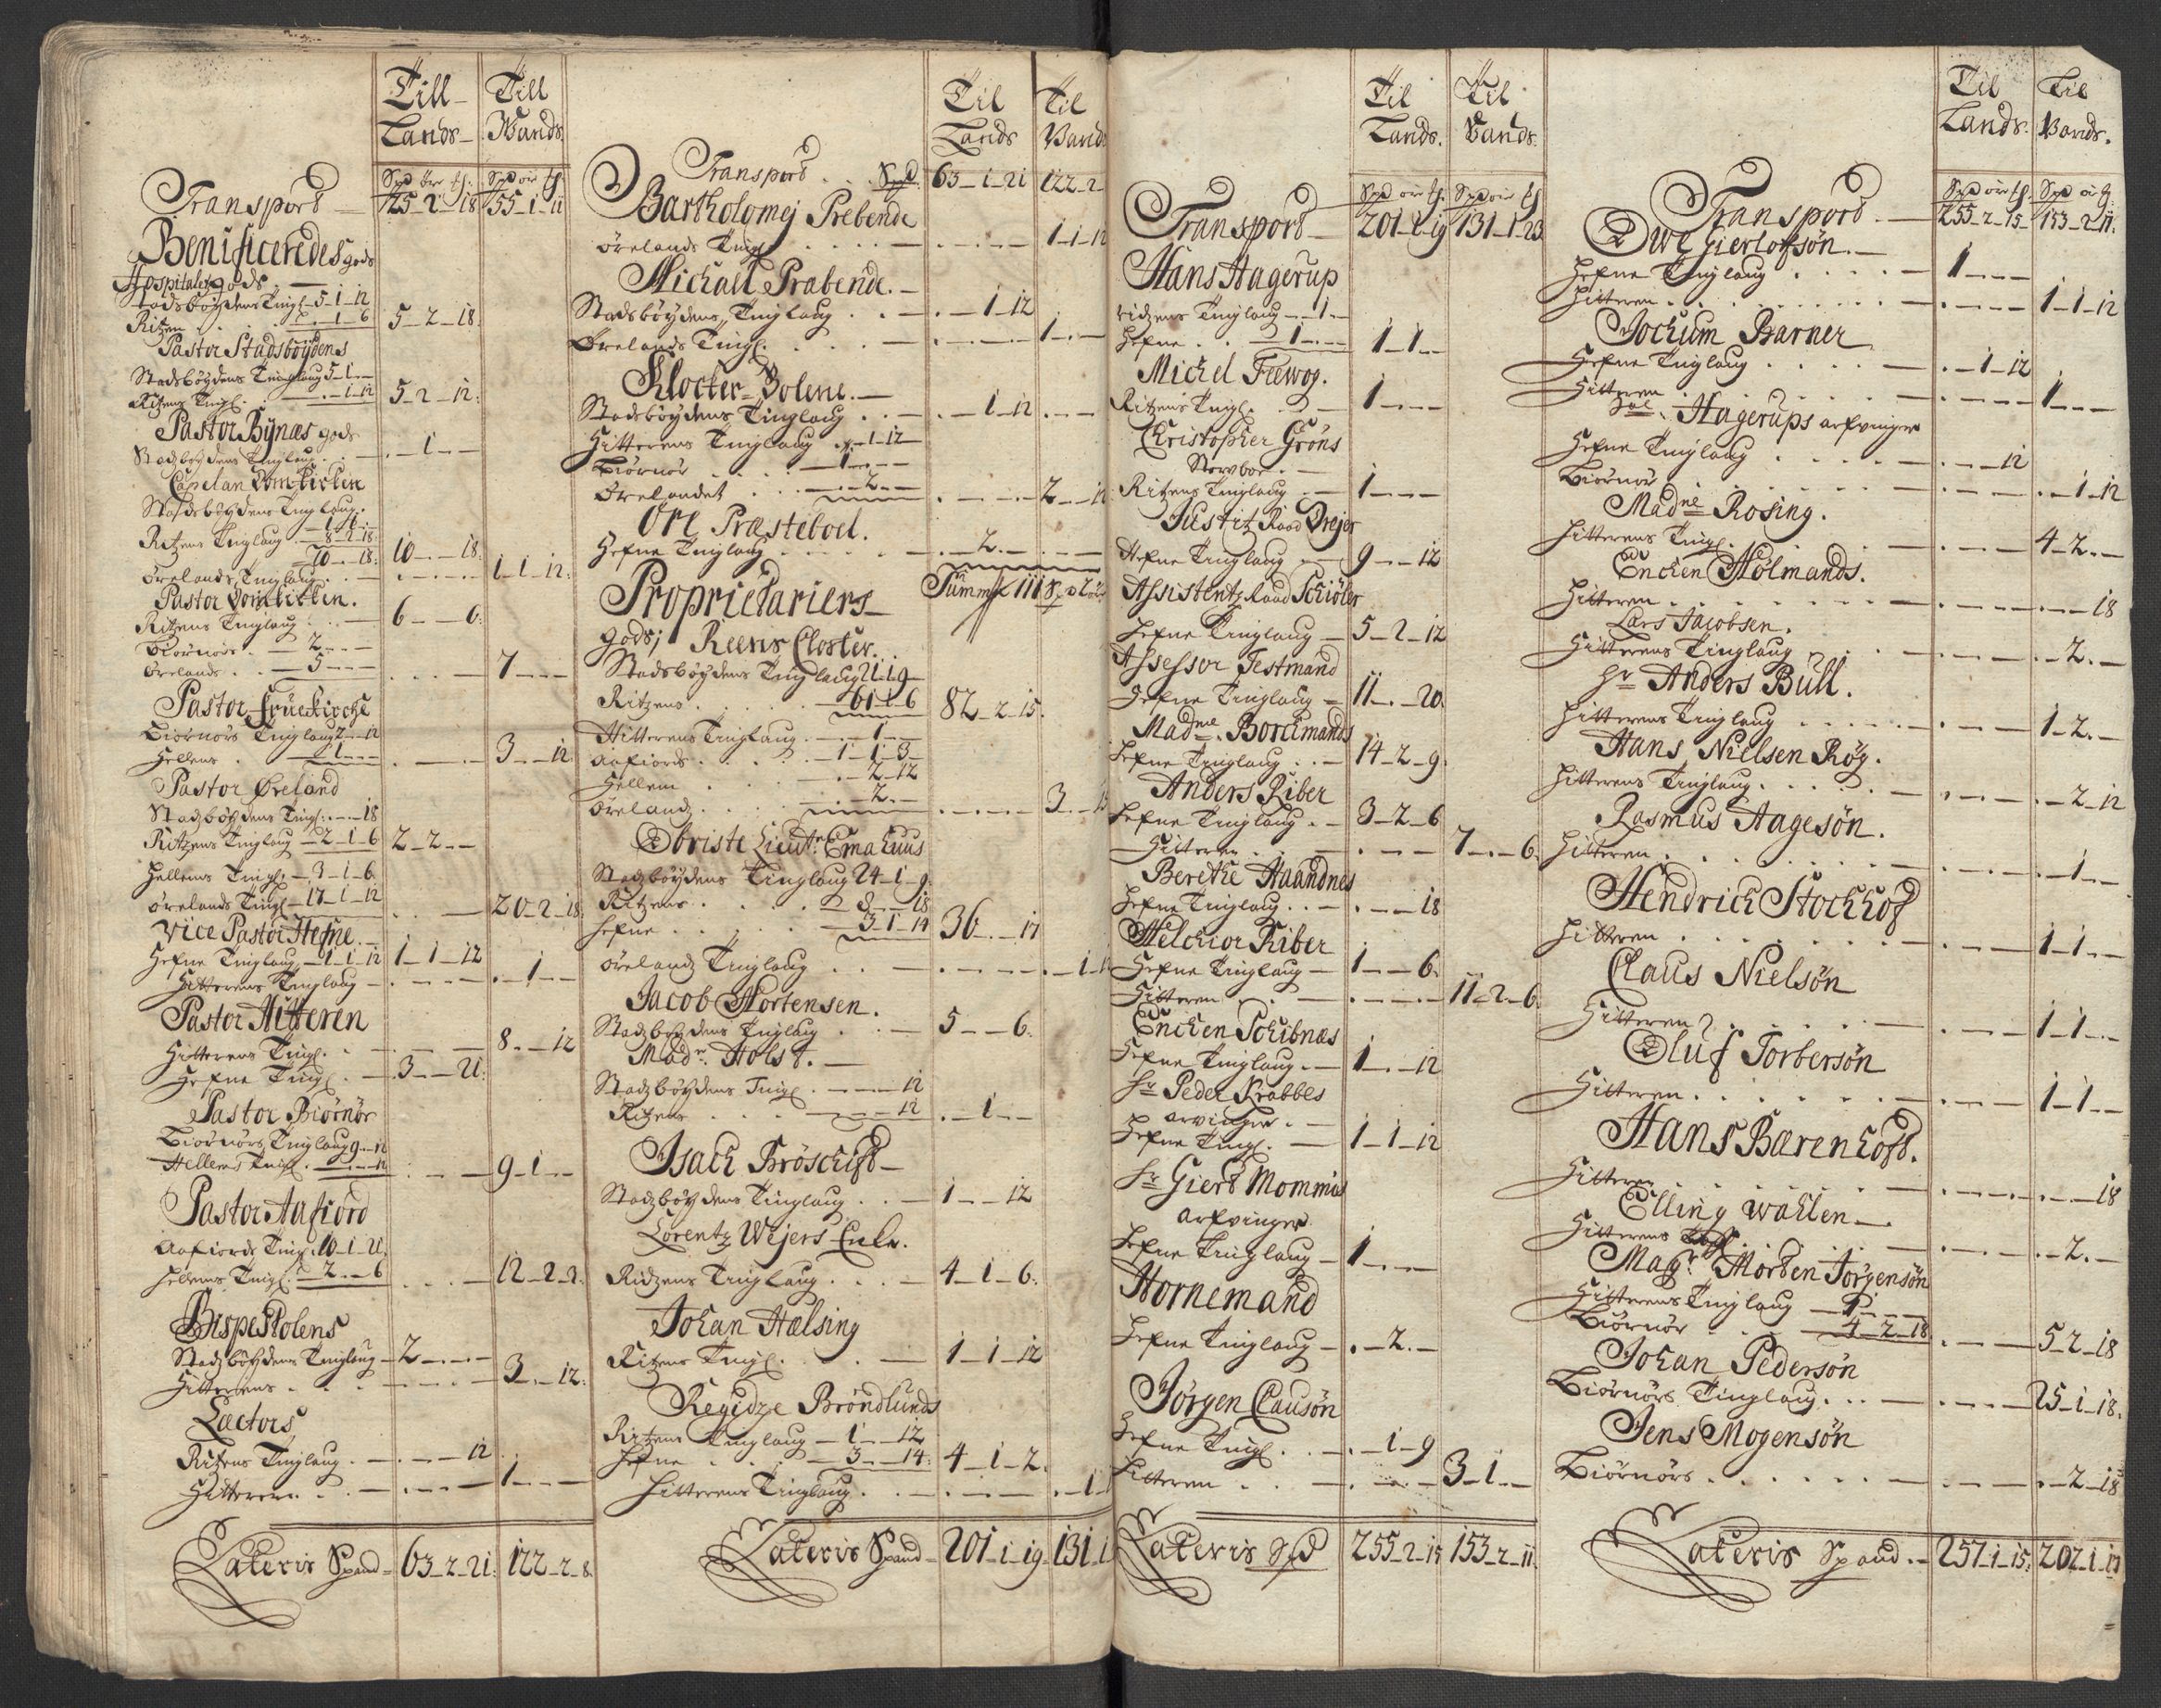 Till Lands Till Wands
Spd öre tß: Spd ör tß
Transport 25-2-18 55-1-11
Benificeredes gods
Hospitalets gods
Stadsböÿdens Tingl 5-1-12
Ritzen - 1-6 5-2-18
Pastor Stadsböÿdens
Stadsböÿdens Tinglaug 5-1--
Ritzens Tingl. - 1-12 5-2-12
Pastor Bÿnæs gods
Stadsböÿdens Tinglaug - 1--
Capelan Domkirken
Stadsböÿdens Tinglaug
1-1-
Ritzens Tinglaug 8-2-18
10--18 10--18
Örelands Tinglaug 1-1-12
Pastor Domkirken.
Ritzens Tinglaug 6--6
Biörnörs 2---
Örelands 5--- 7---
Pastor Fruekirche
Biörnörs Tinglaug 2--12
Hellens 1--- 3--12
Pastor Øreland
Stadzböÿdens Tingl: --18
Ritzens Tinglaug 2-1-6 2-2--
Hellems Tingl. 3-1-6
Örelands Tingl 17-1-12 20-2-18
Vice Pastor Hefne
Hefne Tinglaug 1-1-12 1-1-12
Hitterens Tinglaug - 1--
Pastor Hitteren
Hitterens Tingl. 8--12
Hefne Tingl. 3--21
Pastor Biörnör
Biörnörs Tinglaug 9--12
Hellems Tingl. --12 9-1--
Pastor Aafiord
Aafiords Tingl. 10-1-21
Hellems Tingl. 2--6 12-2-3
BispeStolens
Stadzböÿdens Tinglaug 2---
Hitterens 3--12
Lectors
Ritzens Tinglaug - --12
Hitteren 1---
Lateris Spand 63-2-21 122-2-8
Til Lands Til Vands
Transport Spd 63-1-21 122-2-
Bartholomej Prebende
Örelands Tingl 1-1-12
Michaels Prabende.
Stadsböÿdens Tinglaug - 1-12
Örelands Tingl. 1--
Klocker-Bolene.
Stadsböÿdens Tinglaug - 1-12
Hitterens Tinglaug - 1-12
Biörnör - 1---
Örelandet - 2-- 2--12
Öre Præstebol.
Hefne Tinglaug - 2--
Summa 111 Spd 2 ör
Proprietariers
gods; Reens Closter.
Stadsböÿdens Tinglaug 21-1-9
Ritzens 61-1-6 82-2-15
Hitterens Tinglaug - 1--
Aafiords 1-1-3
Hellem - 2-12
Öreland - 2-- 3--15
Obriste Lieut: Emahuus
Stadzböÿdens Tinglaug 24-1-9
Ritzens 8--18
Hefne 3-1-14 36--17
Örelandz Tinglaug - 1-1
Jacob Mortensen.
Stadzböÿdens Tinglaug 5--6
Mad: Holst.
Stadzböÿdens Tingl --12
Ritzens --12 - 1--
Isach Bröschist
Stadzböÿdens Tinglaug 1--12
Lorentz Wejers Enke.
Ridzens Tinglaug 4-1-6
Johan Hælsing
Ritzens Tingl. 1-1-12
Regidze Bröndlunds
Ritzens Tinglaug 1--12
Hefne 3--14 4-1-2
Hitterens Tinglaug - 1
Lateris Spand 201-1-19 131-1
Til Lands. Til Vands.
Spd öre tß. Spd ör tß
Transport 201-1-19 131-1-23
Hans Hagerup
Ridzens Tinglaug - 1--
Hefne 1--- 1-1--
Michel Frewog.
Ritzens Tingl. 1---
Christopher Gröns
Stervboe.
Ritzens Tinglaug 1---
Justitz Raad Drejer
Hefne Tinglaug 9--12
Assistentz Raad Schiöler
Hefne Tinglaug 5-2-12
Assessor Testmand
Hefne Tinglaug 11--20
Mad: Borcimands
Hefne Tinglaug 14-2-9
Anders Riber
Hefne Tinglaug 3-2-6
Hitteren 7--6
Berethe Haandnes
Hefne Tinglaug --18
Melchior Riber
Hefne Tinglaug 1--6
Hitteren 11-2-6
Enchen Schibnæs
Hefne Tinglaug 1--12
Hr Peder Krabbes
arvinger.
Hefne Tingl. 1-1-12
Hr Giert Mommis
Arfvinger
Hefne Tinglaug 1---
Hornemand
Hefne Tinglaug - 2--
Jörgen Clausön
Hefne Tingl. - 1-9
Hitteren 3-1--
Lateris Spd 255-2-15 153-2-11
Til Lands. Til Vands.
Spd ör tß. Spd ör tß
Transport 255-2-15 153-2-11
Owe Gierlofsön.
Hefne Tinglaug 1---
Hitteren 1-1-12
Jochum Barner
Hefne Tinglaug - 1-12
Hitteren 1---
Sal. Hagerups arfvinger
Hefne Tinglaug --12
Biörnör - 1-12
Madme Rosing.
Hitterens Tingl. 4-2--
Enchen Holmands.
Hitteren --18
Lars Jacobsen.
Hitterens Tinglaug - 2--
Hr Anders Bull.
Hitterens Tinglaug 1-2--
Hans Nielsen Rög.
Hitterens Tinglaug - 2-12
Rasmus Aagesön.
Hitteren - 1--
Hendrich Stochhof
Hitteren 1-1--
Claus Nielsön
Hitteren 1-1--
Oluf Torbersön
Hitteren 1-1--
Hans Bærenholt.
Hitteren --18
Elling Wahlen
Hitterens Tingl. - 2--
Magr. Morten Jörgensön
Hitterens Tinglaug 1---
Biörnör 4-2-18 5-2-18
Johan Pedersön
Biörnörs Tinglaug 25-1-18
Jens Mogensön
Biörnörs - 2-18
Lateris Spand 257-1-15 202-1-17